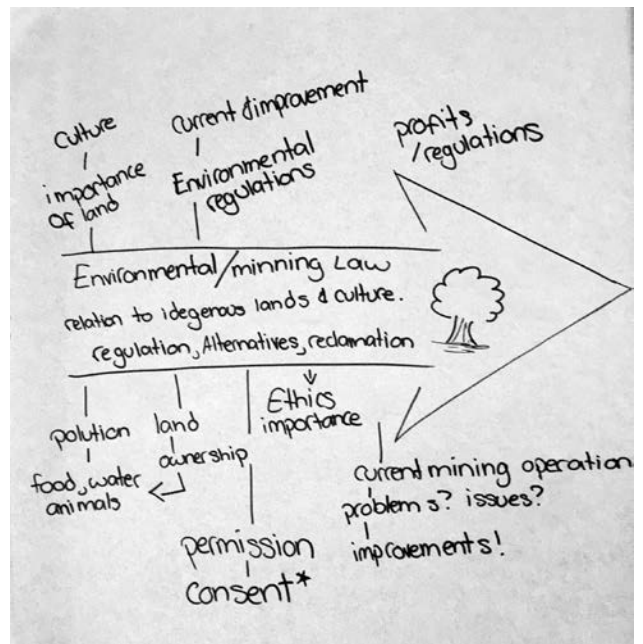 culture
importance
of land
current & improvement
Environmental
regulations
profits
/regulations
Environmental/minning Law
relation to idegenous lands & culture.
regulation, Alternatives, reclamation
polution
food, water
animals
land
ownership
permission
consent*
Ethics
importance
current mining operation
problems? issues?
improvements!